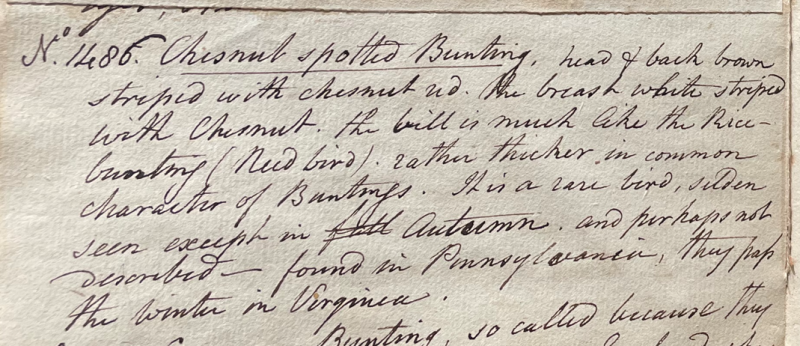 No. 1486. Chesnut spotted Bunting, head & back brown
striped with chesnut red. the breast white striped
with Chesnut. the bill is much like the Rice-
bunting (Reed bird). rather thicker in common
character of Buntings. It is a rare bird, selden
seen except in fall Autumn. and perhaps not
described— found in Pennsylvania, they pass
the winter in Virginea.
Bunting, so called because they